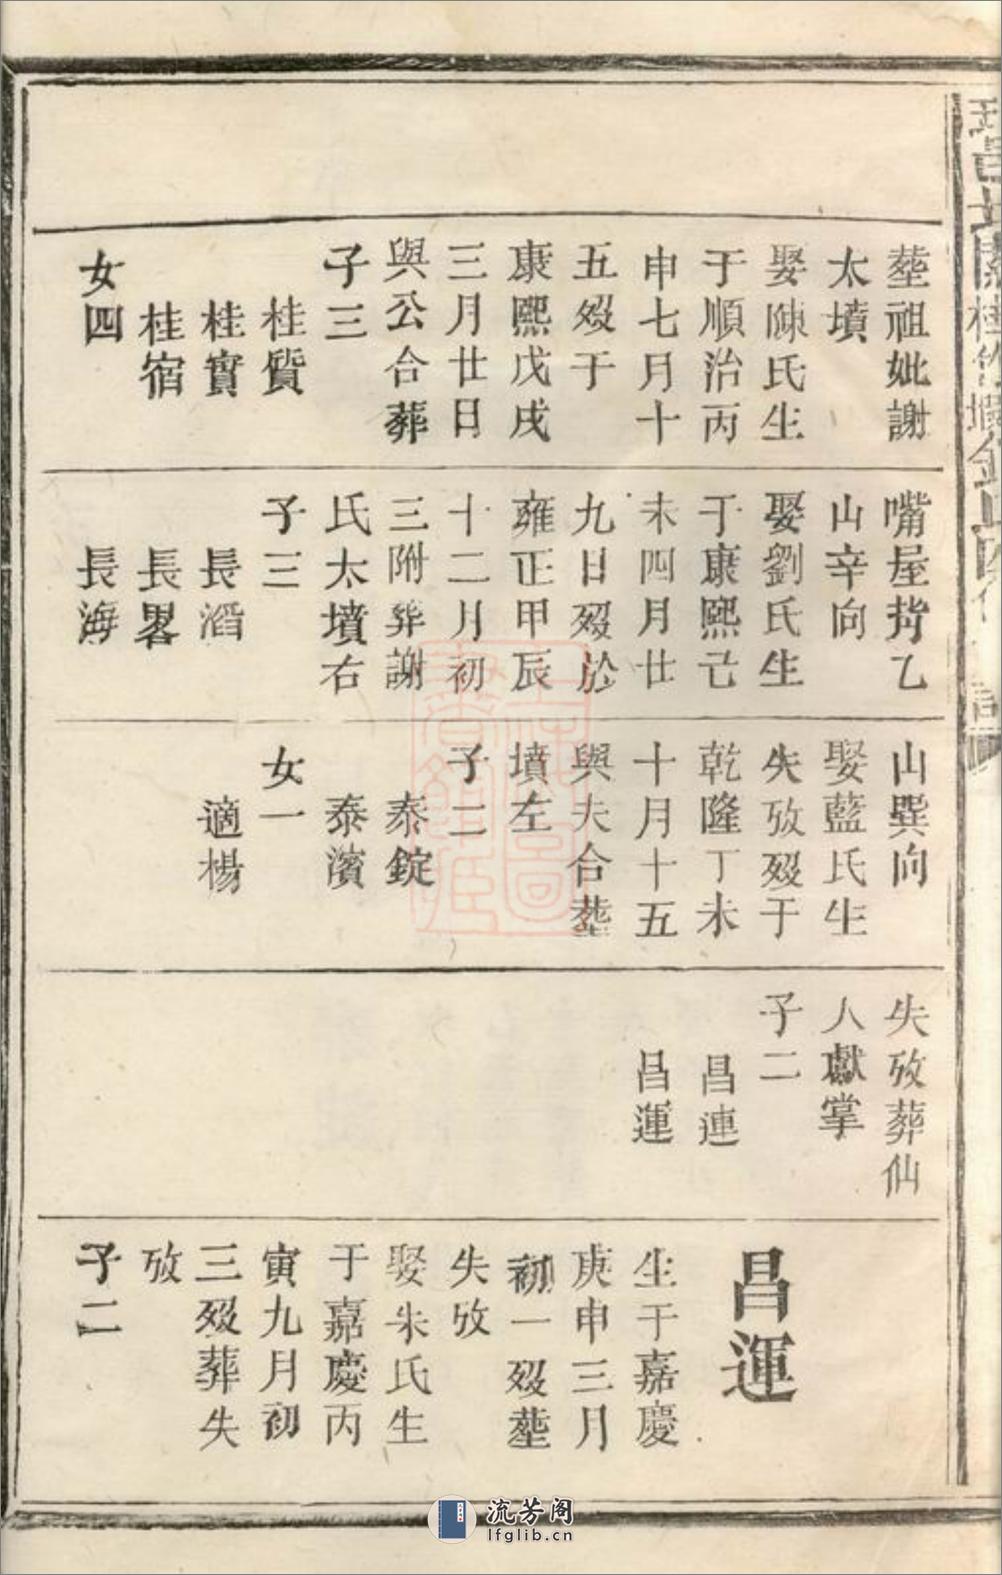 塟祖妣謝
太墳
娶陳氏生
于順治丙
申七月十
五歿于
康熙戊戌
三月廿日
與公合葬
子三
桂質
桂實
桂宿
女四
嘴屋背乙
山辛向
娶劉氏生
于康熙己
未四月廿
九日歿於
雍正甲辰
十二月初
三附葬謝
氏太墳右
子三
長滔
長畧
長海
山巽向
娶藍氏生
失攷歿于
乾隆丁未
十月十五
與夫合塟
墳左
子二
泰錠
泰濱
女一
適楊
失攷葬仙
人獻掌
子二
昌連
昌運
昌運
生于嘉慶
庚申三月
初一歿塟
失攷
娶朱氏生
于嘉慶丙
寅九月初
三歿葬失
攷
子二
流芳阁
lfglib.cn